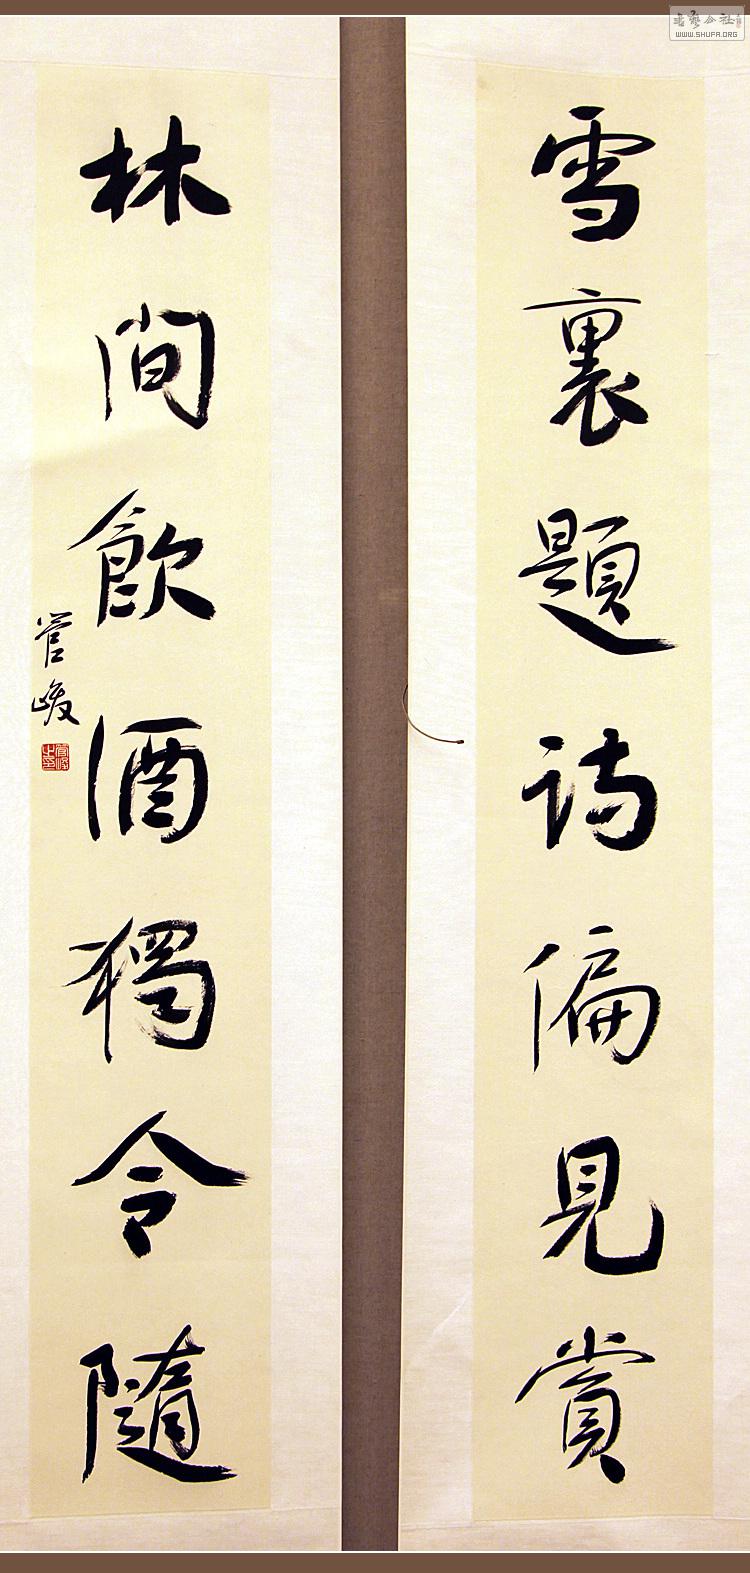 雪裏題詩偏見賞
林間飲酒獨令隨
管峻
WWW.SHUFA.ORG